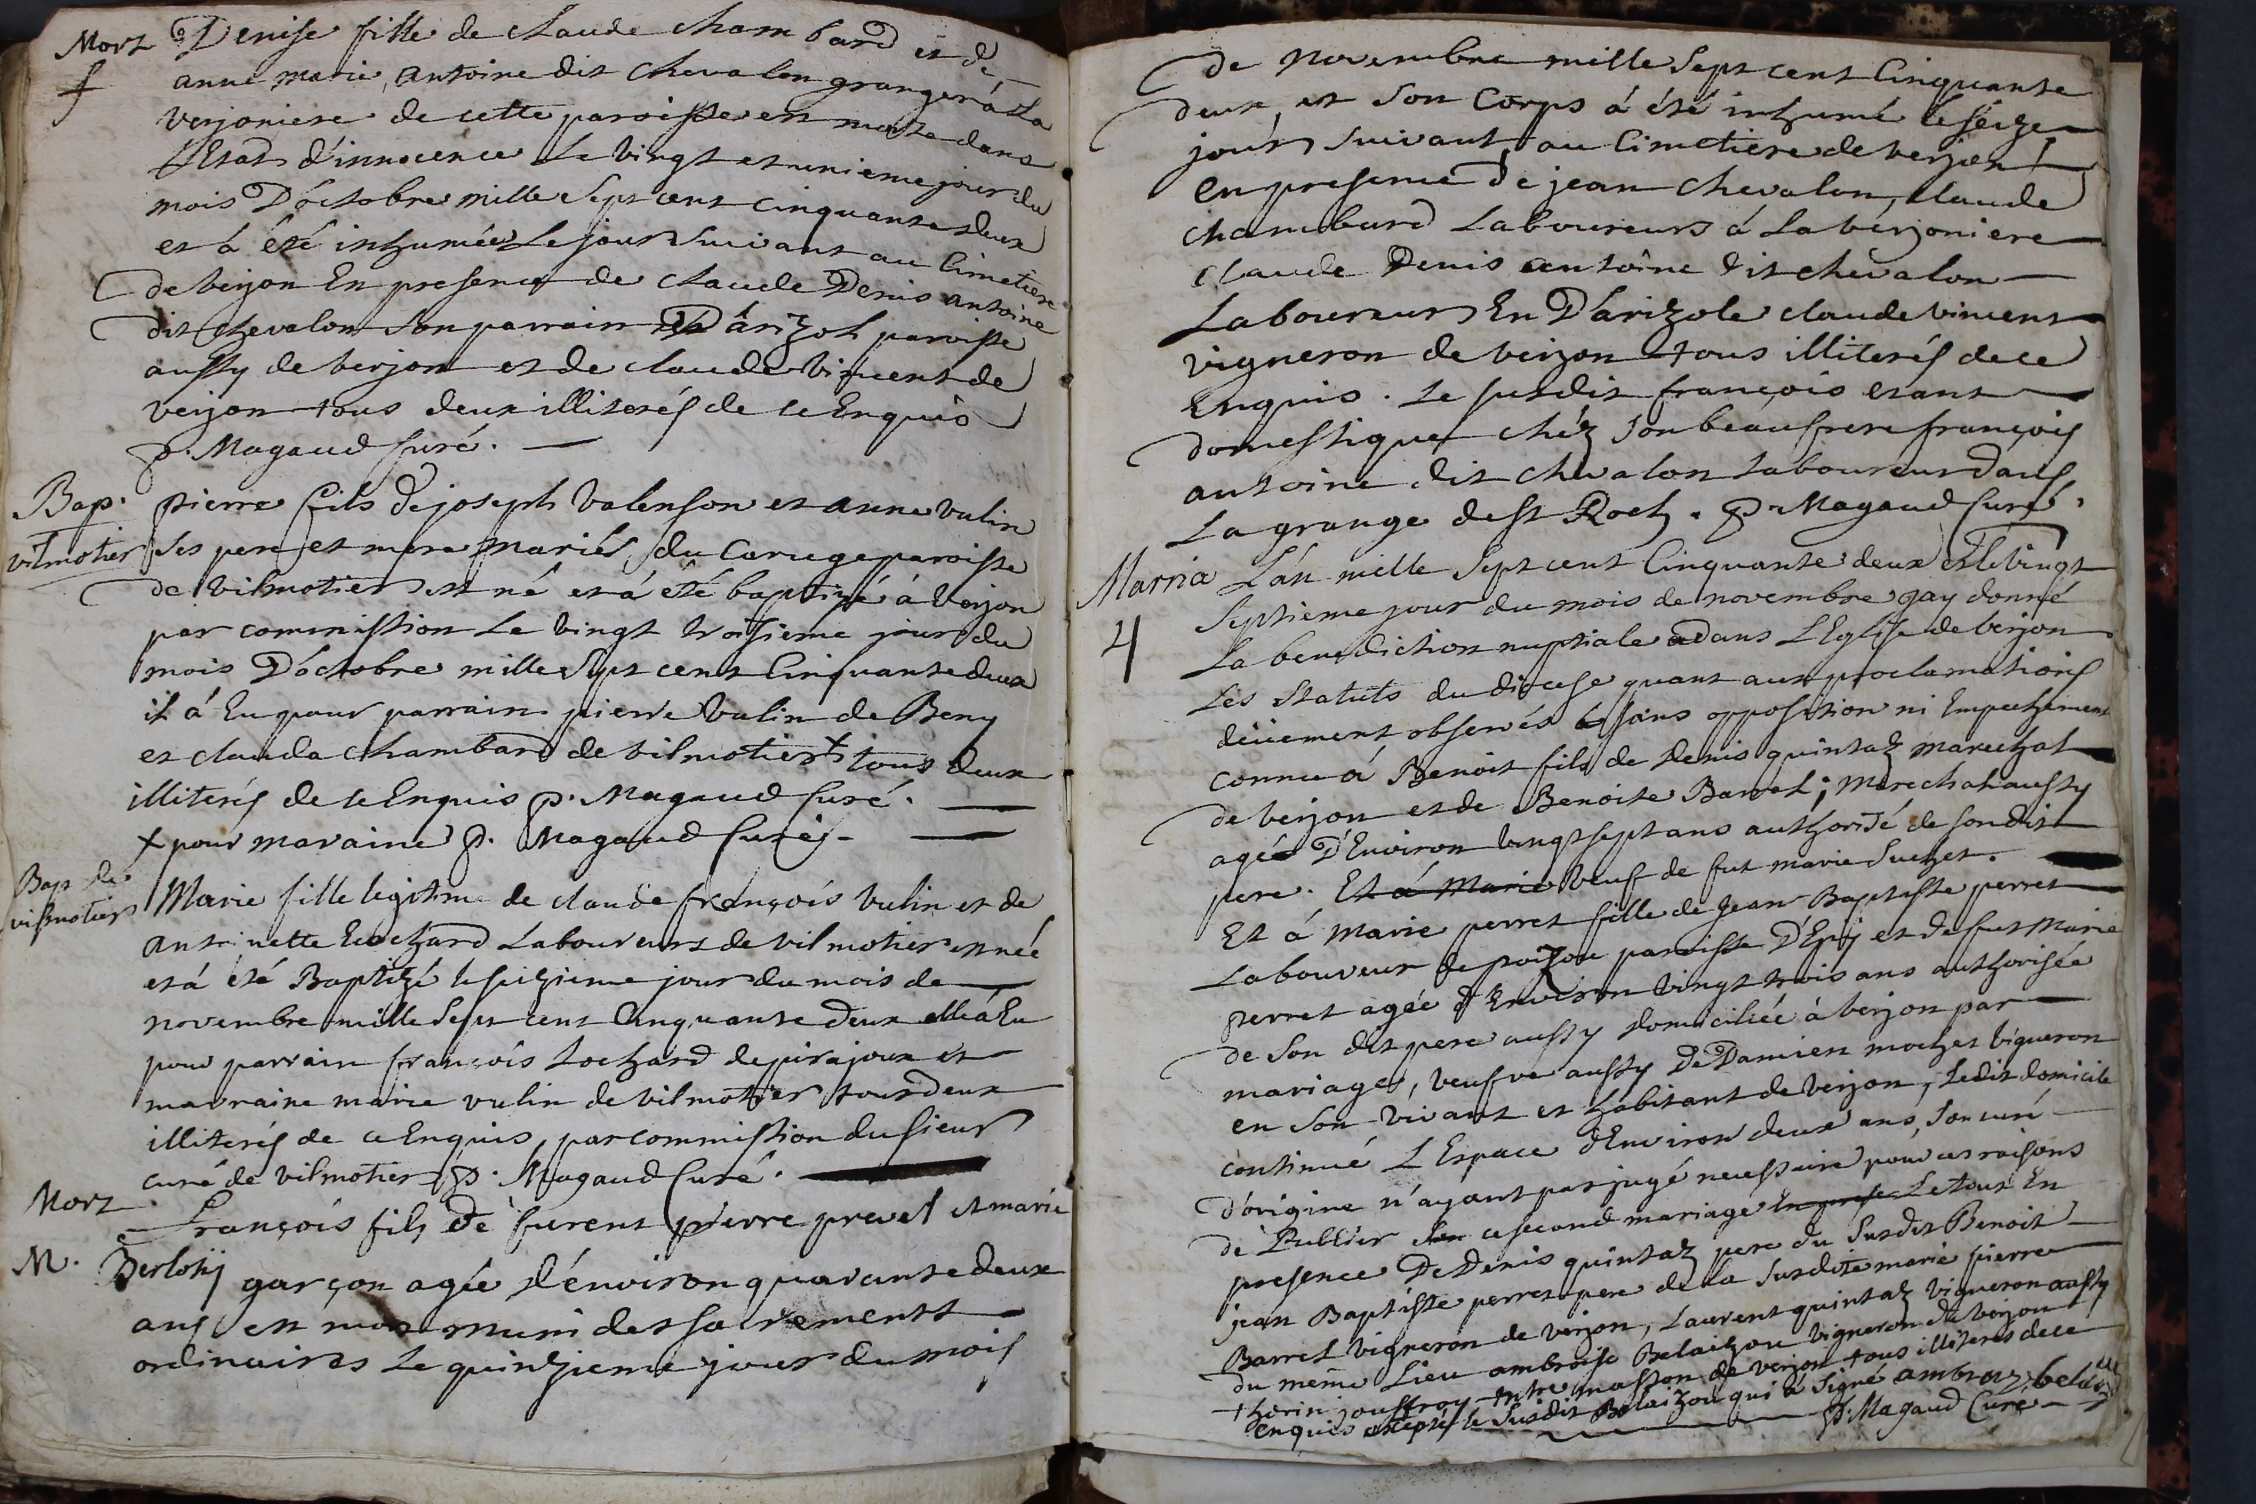 Mort Denise fille de claude chambard et de
anne marie, antoine dit chevalon granger á la
verjoniere de cette paroisse est morte dans
l'Etat d'innocence le vingt et unieme jour du
mois D'octobre mille sept cent cinquante deux
et à été inhumée le jour suivant au Cimetiere
de verjon En presence de claude Denis antoine
dit chevalon son parrain D'arizol paroisse
aussy de verjon et de claude vincent de
verjon tous deux illiterés de ce Enquis
p. Magaud Curé.
Bap. pierre fils de joseph valenson et anne vulin
vilmotier ses pere et mere mariés du Caruge paroisse
de vilmotier est né et á eté baptizé á verjon
par commission le vingt troisieme jour du
mois D'octobre mille sept cent Cinquante deux
il á Eu pour parrain pierre vulin de Beny
et clauda chambard de vilmotier + tous deux
illiterés de ce Enquis p. Magaud Curé.
+ pour maraine p. Magaud Curé.
Bap de
vilmotier Marie fille legitime de claude françois vulin et de
antoinette Lochard Laboureurs de vilmotier est née
et á eté Baptizé le seizieme jour du mois de
novembre mille sept cent Cinquante deux elle á Eu
pour parrain françois Lochard de pirajoux et
marraine marie vulin de vilmotier tous deux
illiterés de ce Enquis, par commission du sieur
curé de vilmotier p. Magaud Curé.
Mort françois fils de furent pierre prevel et marie
M. Berlohj garçon agée d'environ quarante deux
ans est mort muni des sacrements
ordinaires le quinzieme jour du mois
de novembre mille sept cent Cinquante
deux, et son Corps á été inhumé le seize
jour suivant au Cimetiere de verjon
en presence de jean chevalon, claude
chambard Laboureurs á La verjoniere
claude Denis antoine dit chevalon
Laboureur En D'arizole claude vincent
vigneron de verjon tous illiterés de ce
Enquis. le susdit françois etant
domestique chéz son beaufrere françois
antoine dit chevalon laboureur dans
La grange de st Roch. p. Magaud Curé.
Marria L'an mille sept cent Cinquante deux et le vingt
4 septieme jour du mois de novembre jay donné
La benediction nuptiale dans L'Eglise de verjon
Les statuts du diocese quant aux proclamations
deüement observés sans opposition ni Empechement
connu á Benoit fils de Denis quintaz marechal
de verjon et de Benoite Barrel; marechal aussy
agée D'Environ vingt sept ans authorisé de son dit
pere. Et á Marie veuf de fut marie Suchet.
Et á marie perret fille de Jean Baptiste perret
Laboureur de poizou paroisse D'Epij et de fut Marie
perret agée d'Environ vingt trois ans authorisée
de son dit pere aussy domiciliée à verjon par
mariage, veufve aussy De Damien mochet vigneron
en son vivant et habitant de verjon, ledit domicile
continué L'Espace d'Environ deux ans, son curé
d'origine n'ayant pas jugé necessaire pour ces raisons
de Publier ce second mariage Le tout En
presence De Denis quintaz pere du susdit Benoit
jean Baptiste perret pere de la susdite marie pierre
Barrel vigneron de verjon, Laurent quintaz vigneron aussy
du meme Lieu ambroise Belaizou vigneron de verjon
thorin jouffroy masson de verjon tous illiterés de ce
enquis excepté le susdit Belaizou qui á signé ambroz belaizou
p. Magaud Curé